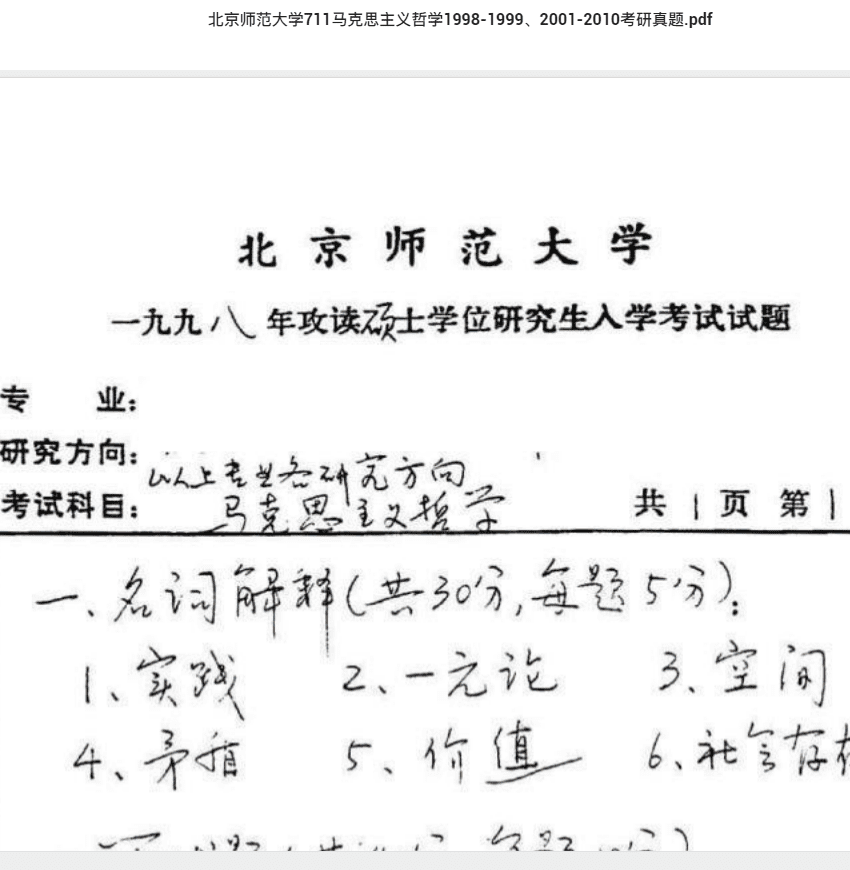 北京师范大学711马克思主义哲学1998-1999、2001-2010考研真题.pdf
北京师范大学
一九九八年攻读硕士学位研究生入学考试试题
专 业：
研究方向： 以上专业各研究方向
考试科目： 马克思主义哲学 共 1 页 第 1
一、名词解释（共30分，每题5分）：
1、实践 2、一元论 3、空间
4、矛盾 5、价值 6、社会存在